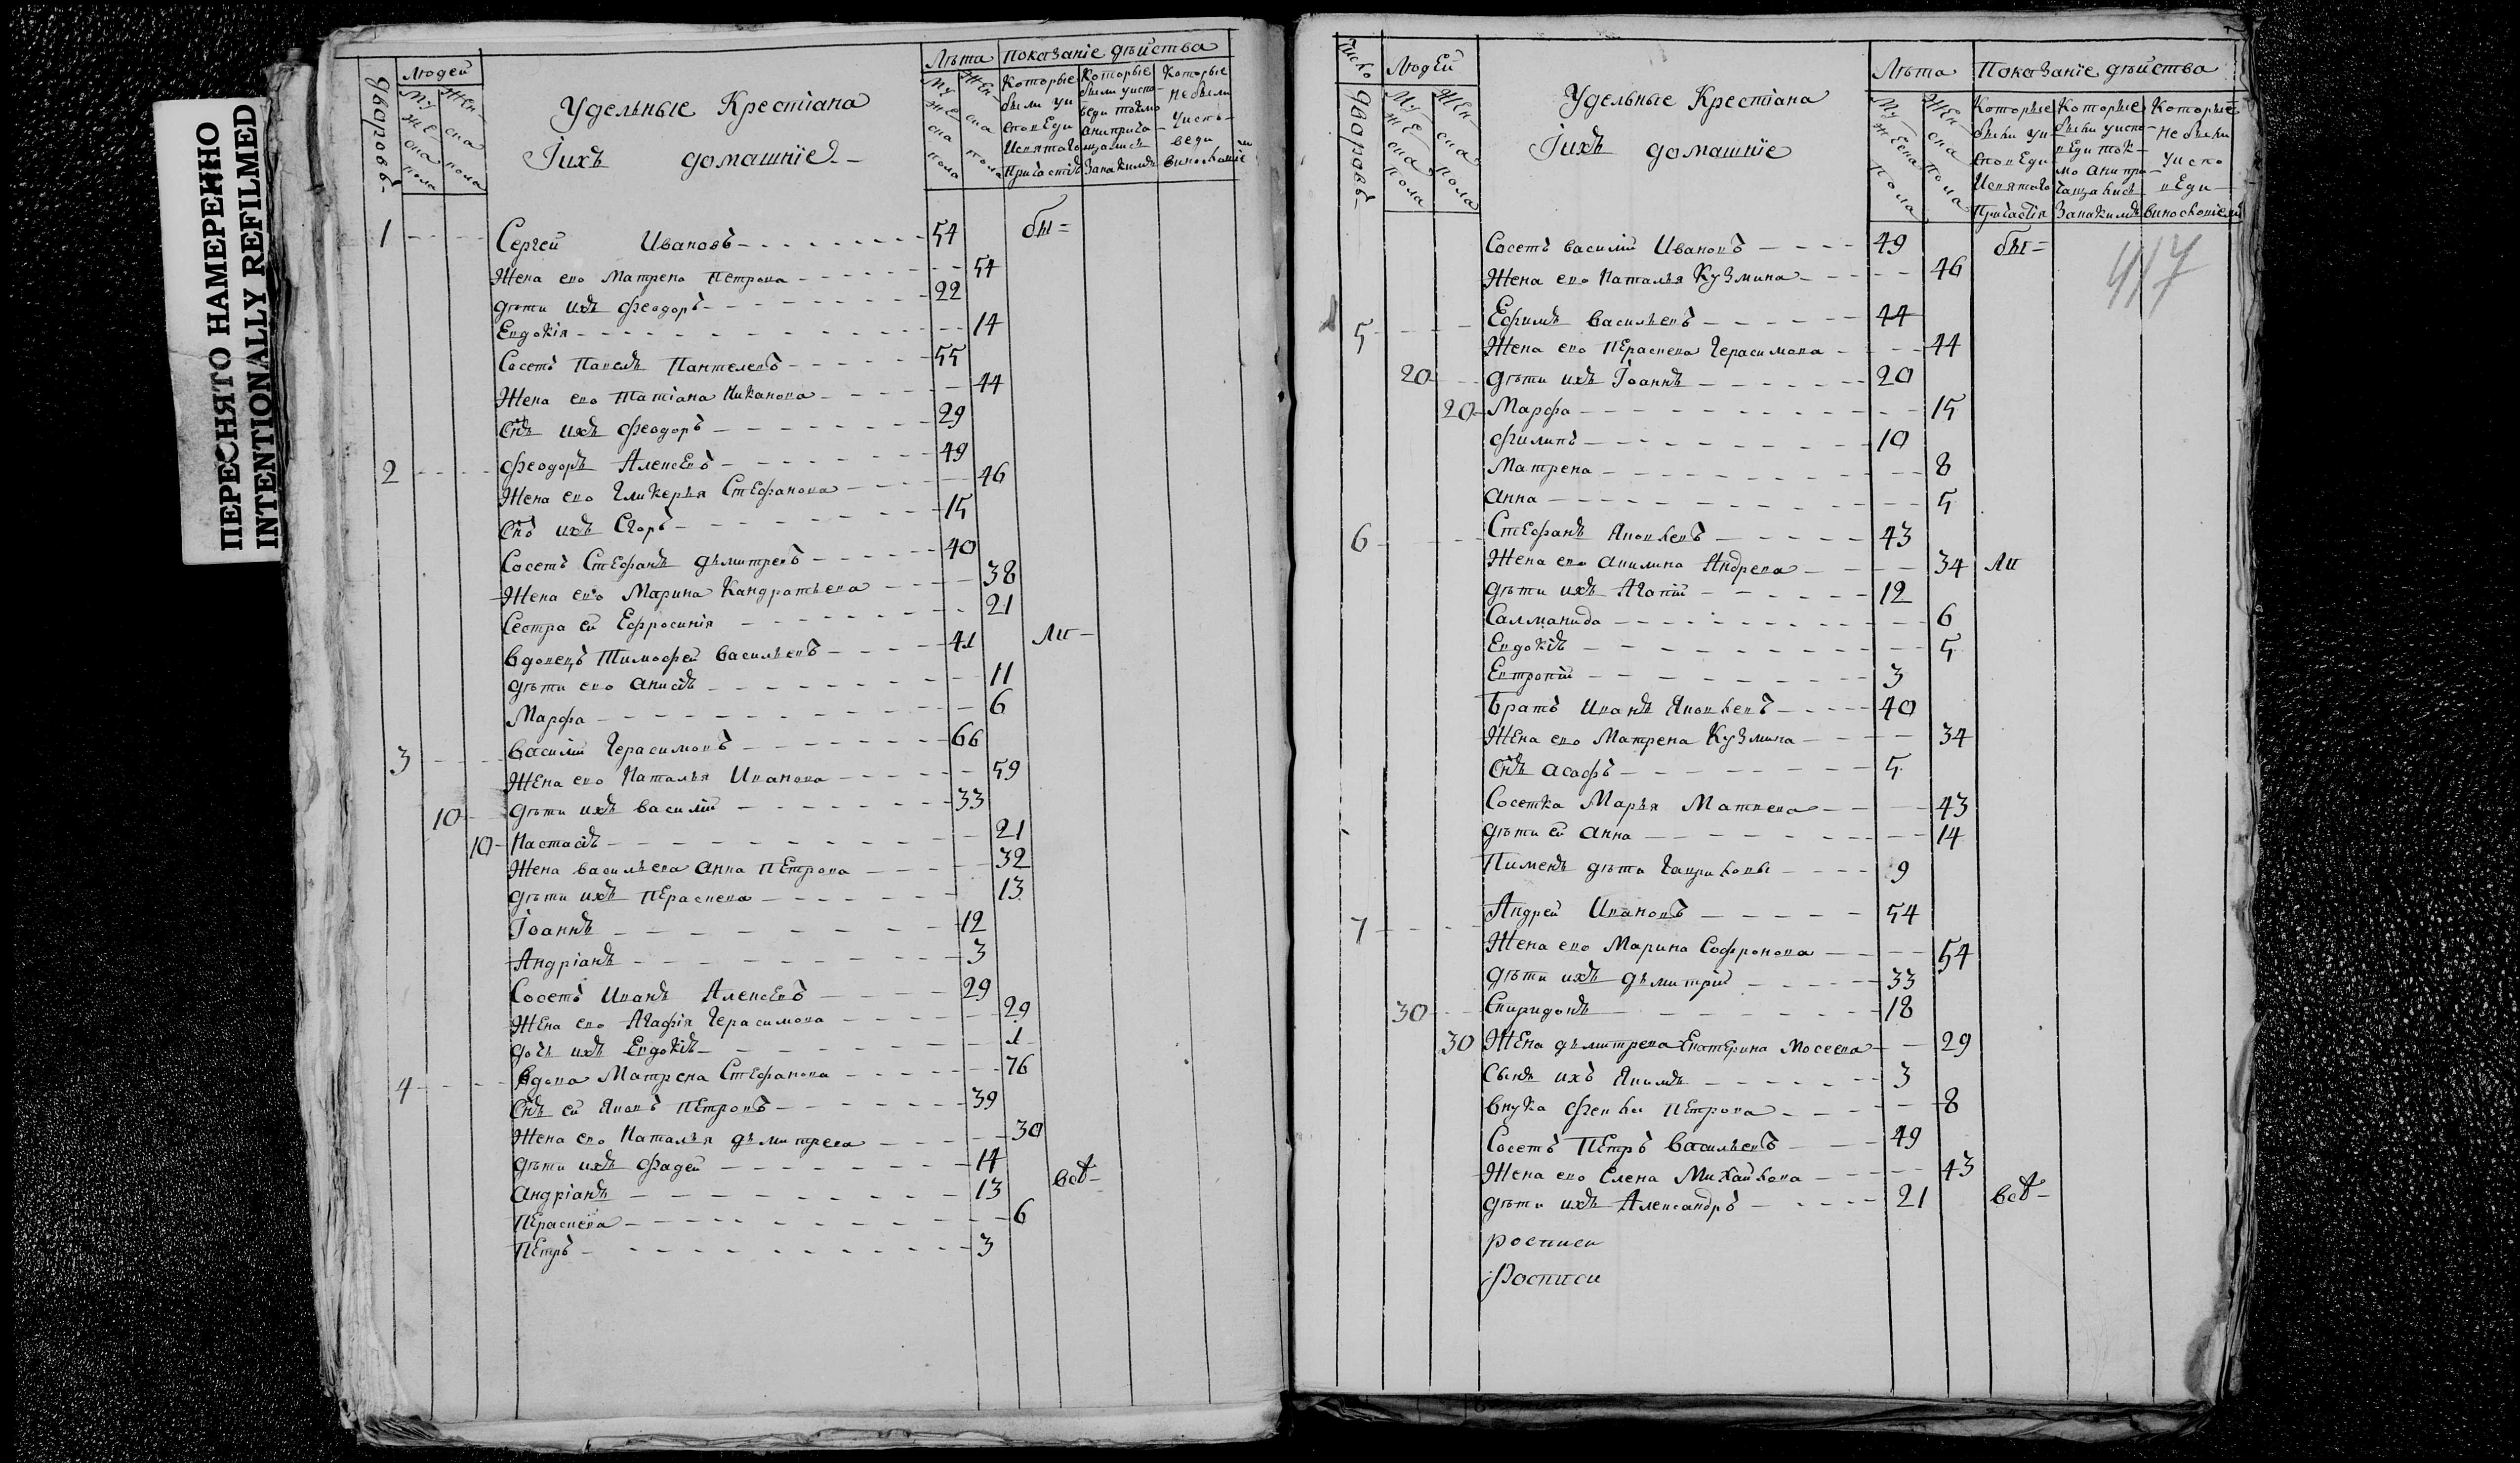 ПЕРЕСНЯТО НАМЕРЕННО
INTENTIONALLY REFILMED
дваровъ
Людей
Му же ска пола
Жен ска пола
Удельные Крестiана
Iихъ домашнiе
Лѣта
Му же ска пола
Жен ска пола
показанiе дѣйства
Которые были уи споведи и святаго Причастiя
Которые были у исповеди токмо а не прича щались За какимъ
Которые не были у испо веди
1 Сергей Ивановъ 54 бы
Жена ево Матрена Петрова 54
дѣти ихъ Феодоръ 22
Евдокiя 14
Сосетъ Павелъ Пантелевъ 55
Жена ево Татiана Никанова 44
Снъ ихъ Феодоръ 29
2 Феодоръ Алексевъ 49
Жена ево Гликерья Стефанова 46
Снъ ихъ Егоръ 15
Сосетъ Стефанъ дѣмитревъ 40
Жена ево Марина Кандратьева 38
Сестра ей Ефросинiя 21
вдовецъ Тимофей васильевъ 41 ли
дѣти ево анисiя 11
Марфа 6
3 василiй Герасимовъ 66
Жена ево Наталья Иванова 59
10 дѣти ихъ василiй 33
10 Настасiя 21
Жена васильева анна Петрова 32
дѣти ихъ Перасковa 13
Iоаннъ 12
Андрiанъ 3
Сосетъ Иванъ Алексевъ 29
Жена ево Агафiя Герасимова 29
дочь ихъ Евдокiя 1
4 вдова Матрена Стефанова 76
Снъ ей Яковъ Петровъ 39
Жена ево Наталья дѣмитрева 30
дѣти ихъ Фадей 14
андрiанъ 13 всѣ
Пераскева 6
Петръ 3
Число дваровъ
Людей
Му же ска пола
Жен ска пола
Удельные Крестiана
Iихъ домашнiе
Лѣта
Му жеска пола
Жен ска пола
Показанiе дѣйства
Которые были уи споведи и святаго Причастiя
Которые были у исповеди ток мо а не при чащались За какимъ
Которые не были у испо веди
417
Сосетъ василiй Ивановъ 49 бы
Жена ево Наталья Кузмина 46
5 Ефимъ васильевъ 44
Жена ево Пераскева Герасимова 44
20 дѣти ихъ Iоаннъ 20
20 Марфа 15
Филипъ 10
Матрена 8
анна 5
6 Стефанъ Яковлевъ 43
Жена ево акилина Андрева 34 ли
дѣти ихъ Агапiй 12
Салманида 6
Евдокiя 5
Евтропiй 3
Братъ Иванъ Яковлевъ 40
Жена ево Матрена Кузмина 34
Снъ асафъ 5
Сосетка Марья Матвева 43
дѣти ей анна 14
Пименъ дѣти Гавриловы 9
7 Андрей Ивановъ 54
Жена ево Марина Софронова 54
дѣти ихъ дѣмитрiй 33
30 Спиридонъ 18
30 Жена дѣмитрева Екатерина Мосеева 29
Сынъ ихъ Якимъ 3
внука Фекла Петрова 8
Сосетъ Петръ васильевъ 49
Жена ево Елена Михайлова 43
дѣти ихъ Александръ 21 всѣ
росписи
Росписи